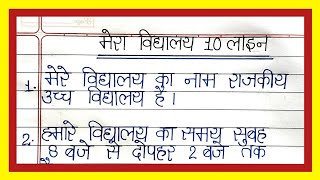 मेरा विद्यालय 10 लाइन
1. मेरे विद्यालय का नाम राजकीय
उच्च विद्यालय है।
2. हमारे विद्यालय का समय सुबह
8 बजे से दोपहर 2 बजे तक